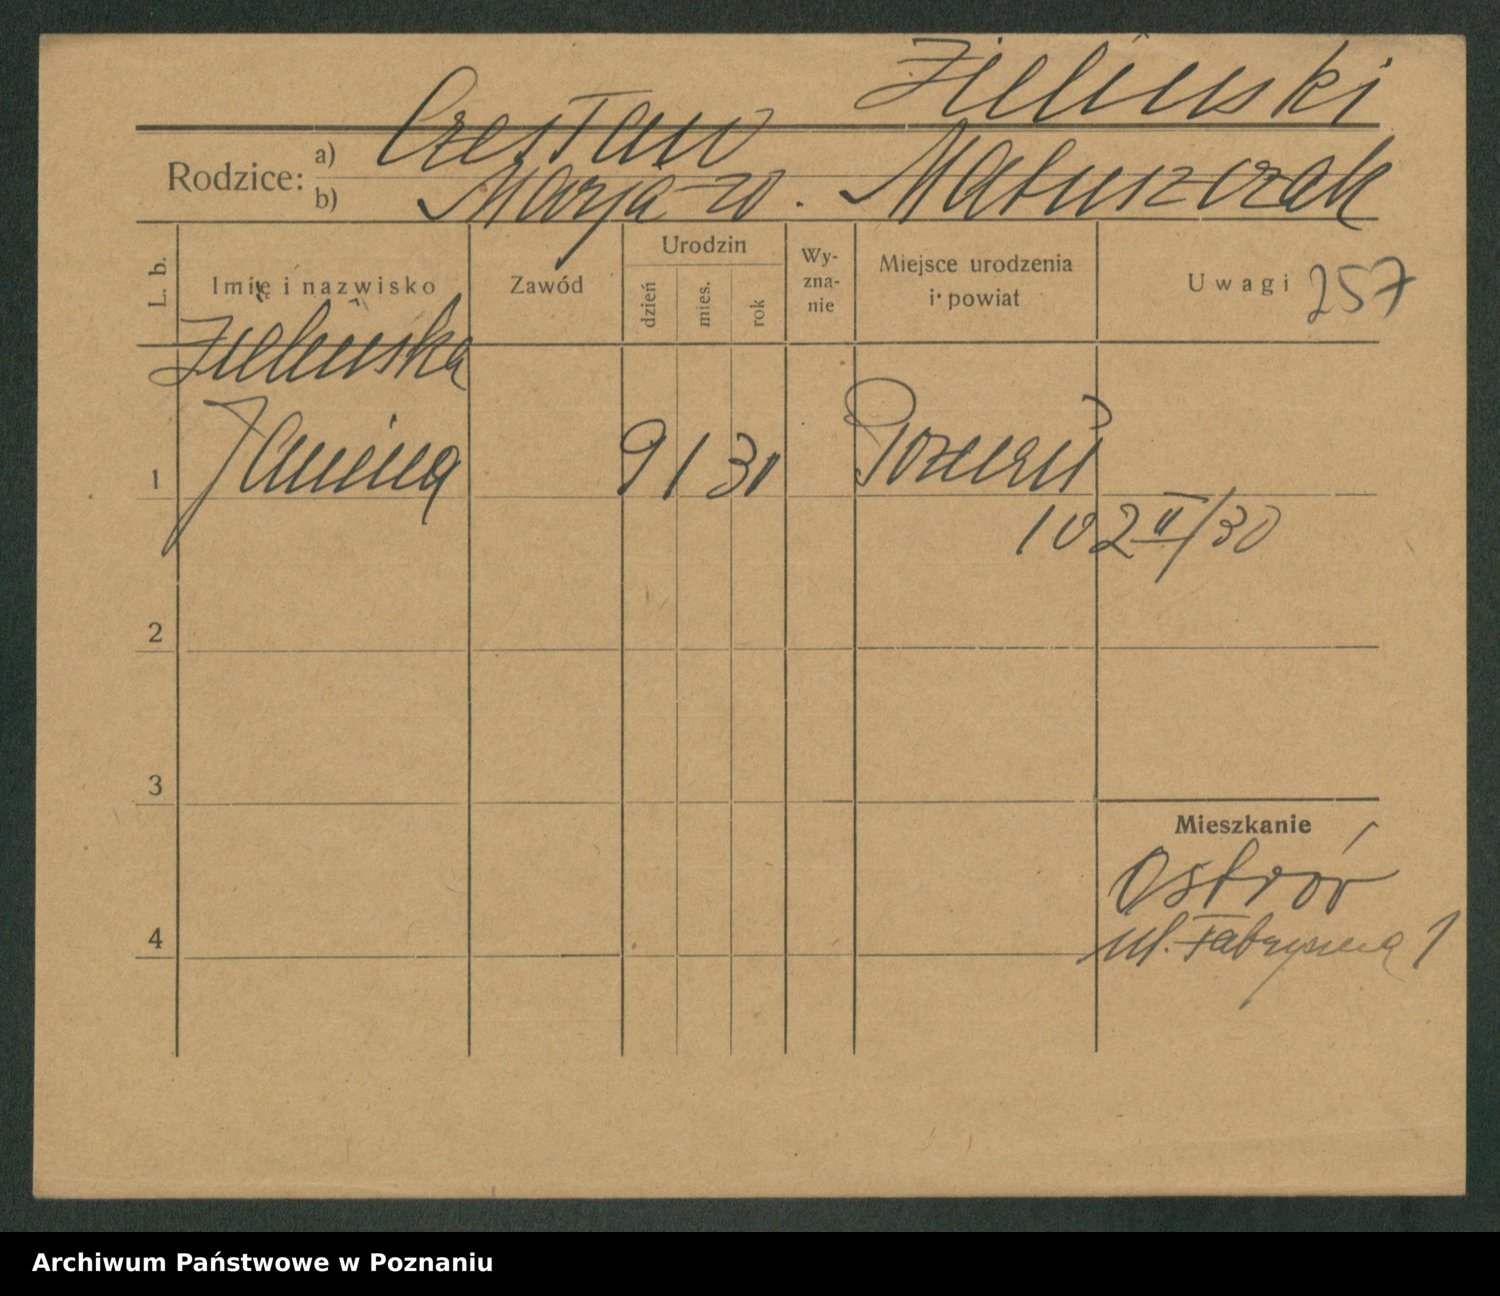 Zieliński
Czesław
Rodzice: a)
b) Marja z d. Matuszczak
L. b.
Imię i nazwisko
Zawód
Urodzin
dzień
mies.
rok
Wy-
zna-
nie
Miejsce urodzenia
i powiat
Uwagi 257
Zielińska
1 Janina 9 1 30 Poznań
10 2 II/30
2
3
Mieszkanie
Ostrów
4 ul. Fabryczna 1
Archiwum Państwowe w Poznaniu